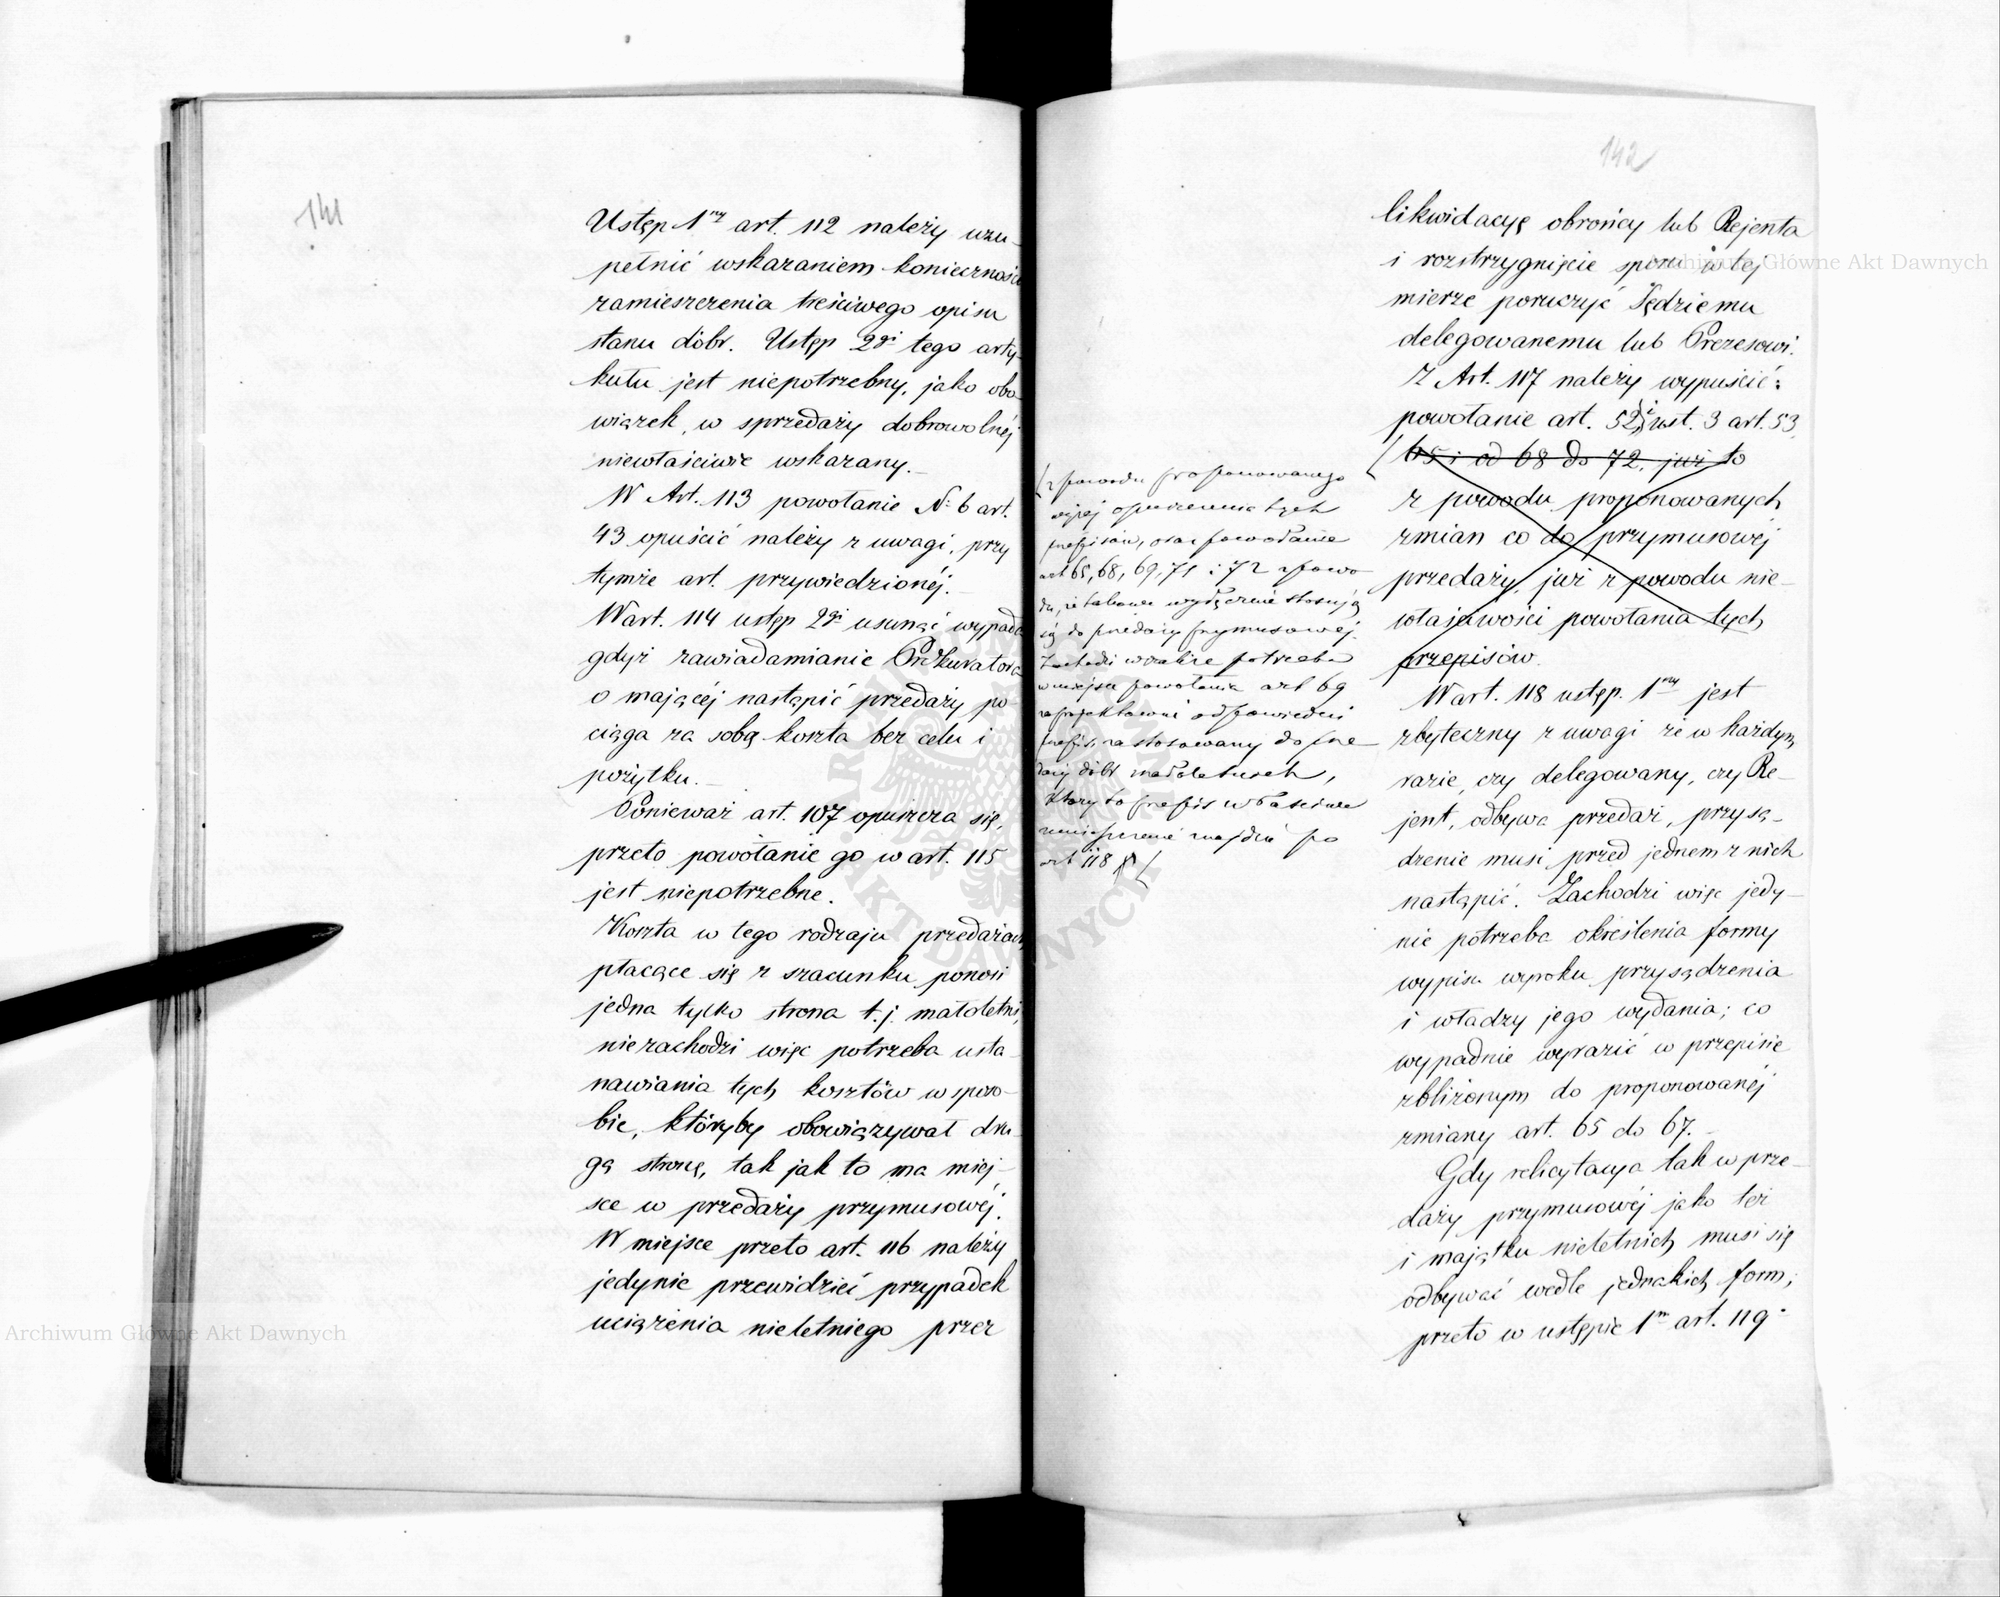 141
Ustęp 1ny art. 112 należy uzu-
pełnić wskazaniem konieczności
zamieszczenia treściwego opisu
stanu dóbr. Ustęp 2gi tego arty-
kułu jest niepotrzebny, jako obo-
wiązek, w sprzedaży dobrowolnéj
niewłaściwie wskazany.
W Art. 113 powołanie N: 6 art.
43 opuścić należy z uwagi, przy
tymże art. przywiedzionéj.
W art. 114 ustęp 2gi usunąć wypada
gdyż zawiadamianie Prokuratora
o mającéj nastąpić przedaży po-
ciąga za sobą koszta bez celu i
pożytku.
Ponieważ art. 107 opuszcza się,
przeto powołanie go w art. 115
jest niepotrzebne.
Koszta w tego rodzaju przedażach
płacące się z szacunku ponosi
jedna tylko strona t.j. małoletni,
nie zachodzi więc potrzeba usta-
nawiania tych kosztów w sposo-
bie, któryby obowiązywał dru-
gą stronę, tak jak to ma miej-
sce w przedaży przymusowéj.
W miejsce przeto art. 116 należy
jedynie przewidzieć przypadek
uciążenia nieletniego przez
142
likwidacyę obrońcy lub Rejenta
i rozstrzygnięcie sporu w tej
mierze poruczyć Sędziemu
delegowanemu lub Prezesowi.
Z Art. 117 należy wypuścić:
powołanie art. 52, i ust. 3 art. 53,
65 i od 68 do 72, już to
z powodu proponowanych
zmian co do przymusowéj
przedaży, już z powodu nie-
właściwości powołania tych
przepisów.
W art. 118 ustęp. 1ny jest
zbyteczny z uwagi że w każdym
razie, czy delegowany, czy Re-
jent, odbywa przedaż, przysą-
dzenie musi przed jednem z nich
nastąpić. Zachodzi więc jedy-
nie potrzeba określenia formy
wypisu wyroku przysądzenia
i władzy jego wydania; co
wypadnie wyrazić w przepisie
zbliżonym do proponowanéj
zmiany art. 65 do 67.
Gdy relicytacya tak w prze-
daży przymusowéj jako też
i majątku nieletnich musi się
odbywać wedle jednakich form;
przeto w ustępie 1m art. 119
z powodu proponowanego
wyżej opuszczenia tych
przepisów, oraz powołanie
art 65, 68, 69, 71 i 72 z powo-
du, że takowe wyłącznie stosują
się do przedaży przymusowej.
Zachodzi wszakże potrzeba
w miejsce powołania art 69
zaprojektować odpowiedni
przepis, zastosowany do prze-
daży dóbr małoletnich,
który to przepis właściwe
umieszczenie znajdzie po
art 118
Archiwum Główne Akt Dawnych
Archiwum Główne Akt Dawnych
ARCHIWUM GŁÓWNE AKT DAWNYCH